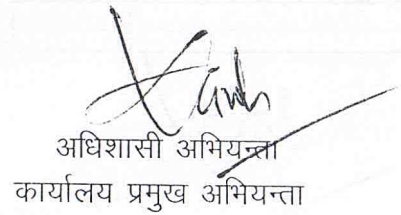 अधिशासी अभियन्ता
कार्यालय प्रमुख अभियन्ता